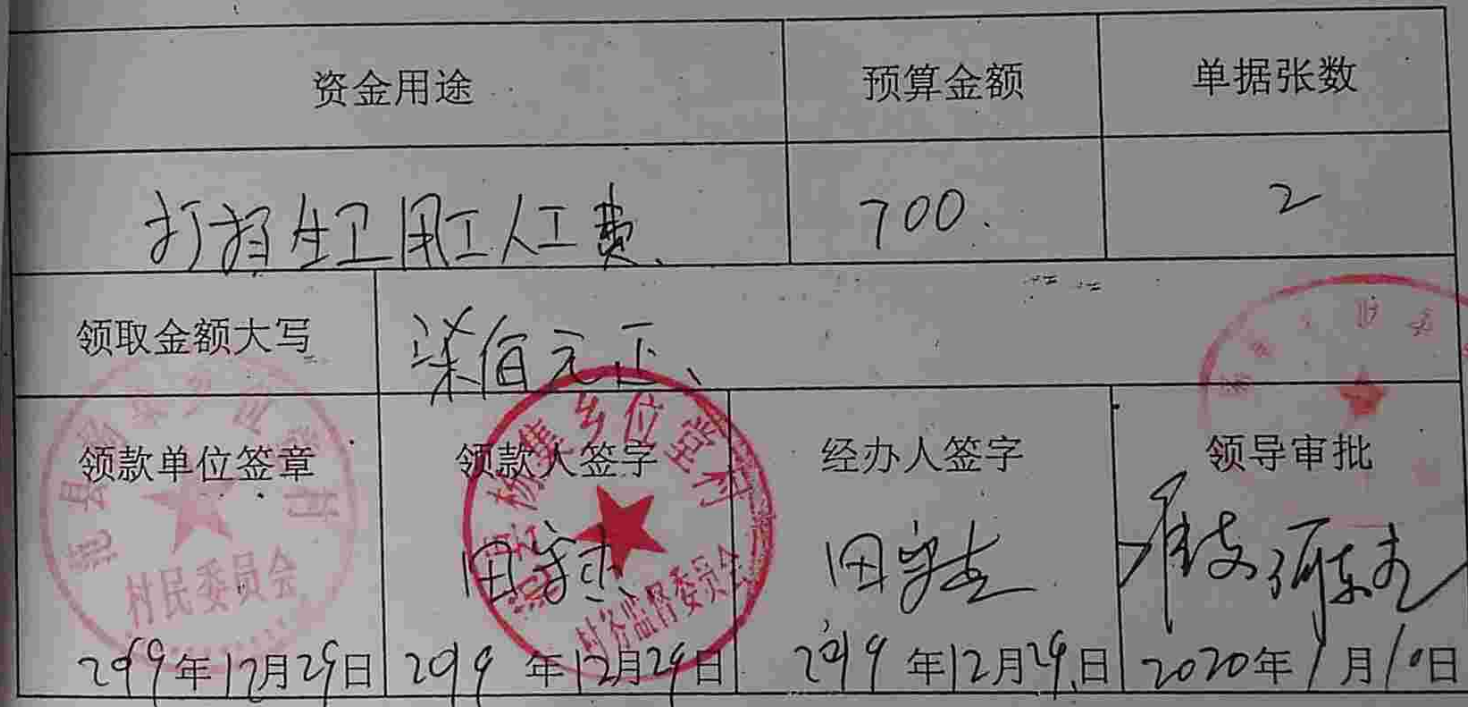 资金用途 预算金额 单据张数
打扫卫卫用工人工费 700. 2
领取金额大写 柒佰元正、
领款单位签章 领款人签字 经办人签字 领导审批
乡位堂村
村民委员会
村务监督委员会
田 田
2019年12月29日 2019年12月29日 2019年12月29日 2020年1月10日